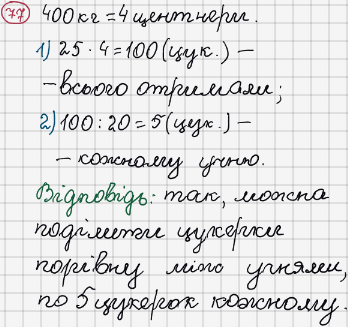 77 400 кг = 4 центнери.
1) 25 · 4 = 100 (цук.) –
– всього отримали;
2) 100 : 20 = 5 (цук.) –
– кожному учню.
Відповідь: так, можна
поділити цукерки
порівну між учнями,
по 5 цукерок кожному.